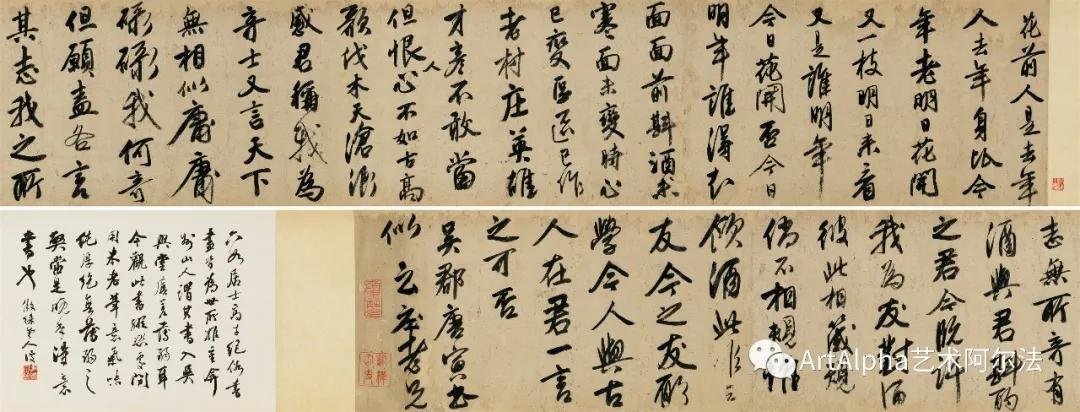 花前人是去年
人去年身比今
年老明日花開
又一枝明日来看
又是誰明年
今日花開否今日
明年誰得知
面面前斟酒未
寒面未變時心
已變區區已作
老村庄英雄
才彦不敢當
但恨人心不如古高
歌伐木天滄浪
感君稱我為
奇士又言天下
無相似庸庸
碌碌我何奇
但願盍各言
其志我之所
志無所奇有
酒與君斟酌
之君今既許
我為友對酒
彼此相箴規
倘不相規惟
傾酒此
友今之友
學今人與古
人在君一言
之可否
吳郡唐寅書
似之老兄
六如居士高士絕倫書
畫皆為世所推重弇
州山人謂其書入吳
興堂廡差薄弱耳
今觀此書縱逸
老筆意氣味
純厚絕無薄弱之
當是晚年得意
書也
ArtAlpha艺术阿尔法